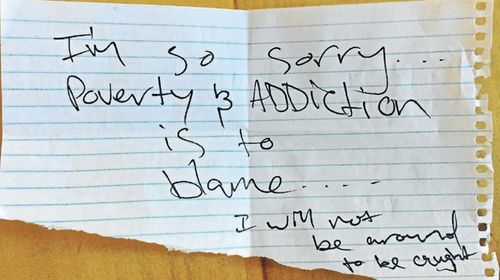 I'm so sorry....
Poverty & ADDiCtiON
is to
blame.....
I will not
be around
to be cought